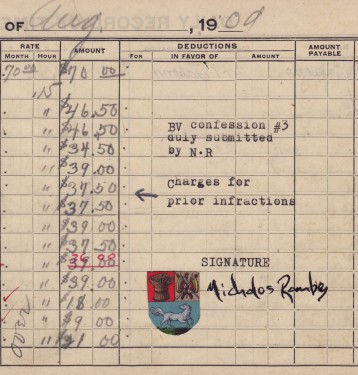 OF Aug , 1909
RATE AMOUNT DEDUCTIONS AMOUNT PAYABLE
MONTH HOUR FOR IN FAVOR OF AMOUNT
70 00 $70 00
.15
" $46.50
" $46.50 BV confession #3
" $34.50 duly submitted
" $39.00 by N.R
" $37.50 Charges for
" $37.50 prior infractions
" $39.00
" $37.50
" $39.00 SIGNATURE
" $39.00 Nicholos Rombes
" $18.00
" $9.00
" $21.00